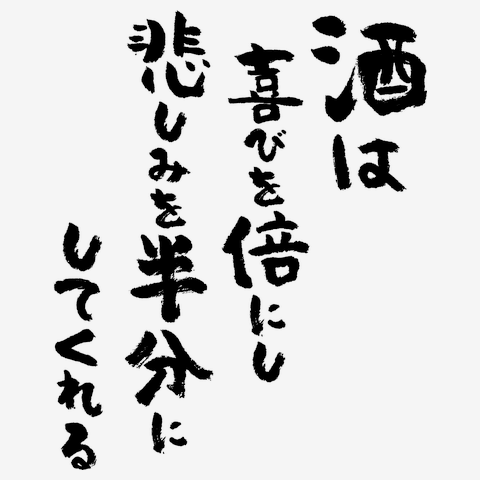 酒は
喜びを倍にし
悲しみを半分に
してくれる